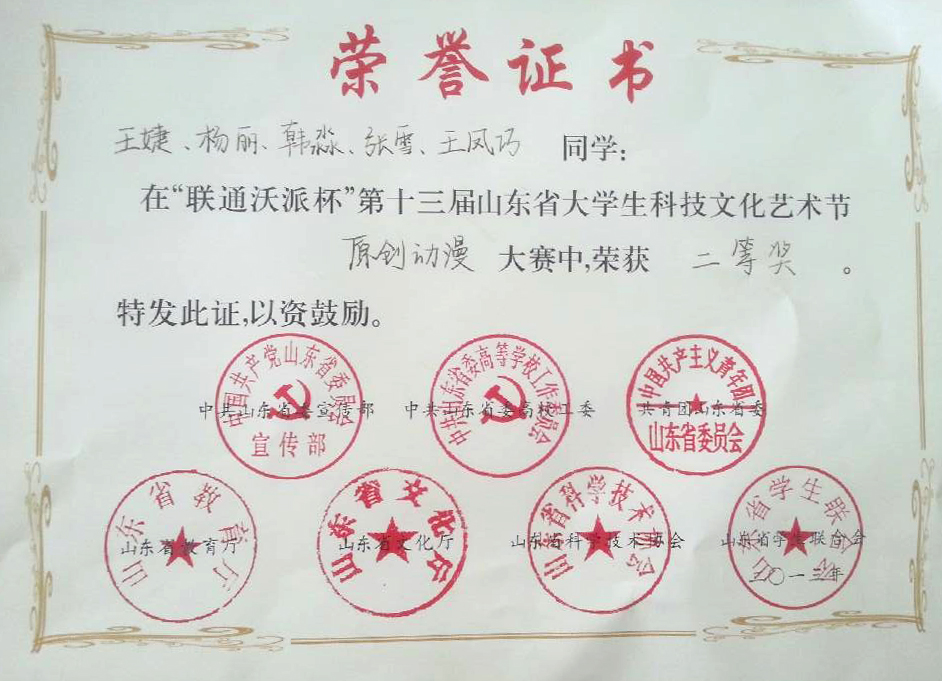 荣誉证书
王婕、杨丽、韩淼、张雪、王凤巧 同学:
在“联通沃派杯”第十三届山东省大学生科技文化艺术节
原创动漫 大赛中,荣获 二等奖 。
特发此证,以资鼓励。
中国共产党山东省委员会 宣传部
中共山东省委高等学校工作委员会
中国共产主义青年团 山东省委员会
中共山东省委宣传部 中共山东省委高校工委 共青团山东省委
山东省教育厅
山东省文化厅
山东省科学技术协会
山东省学生联合会
山东省教育厅 山东省文化厅 山东省科学技术协会 山东省学生联合会
二〇一三年